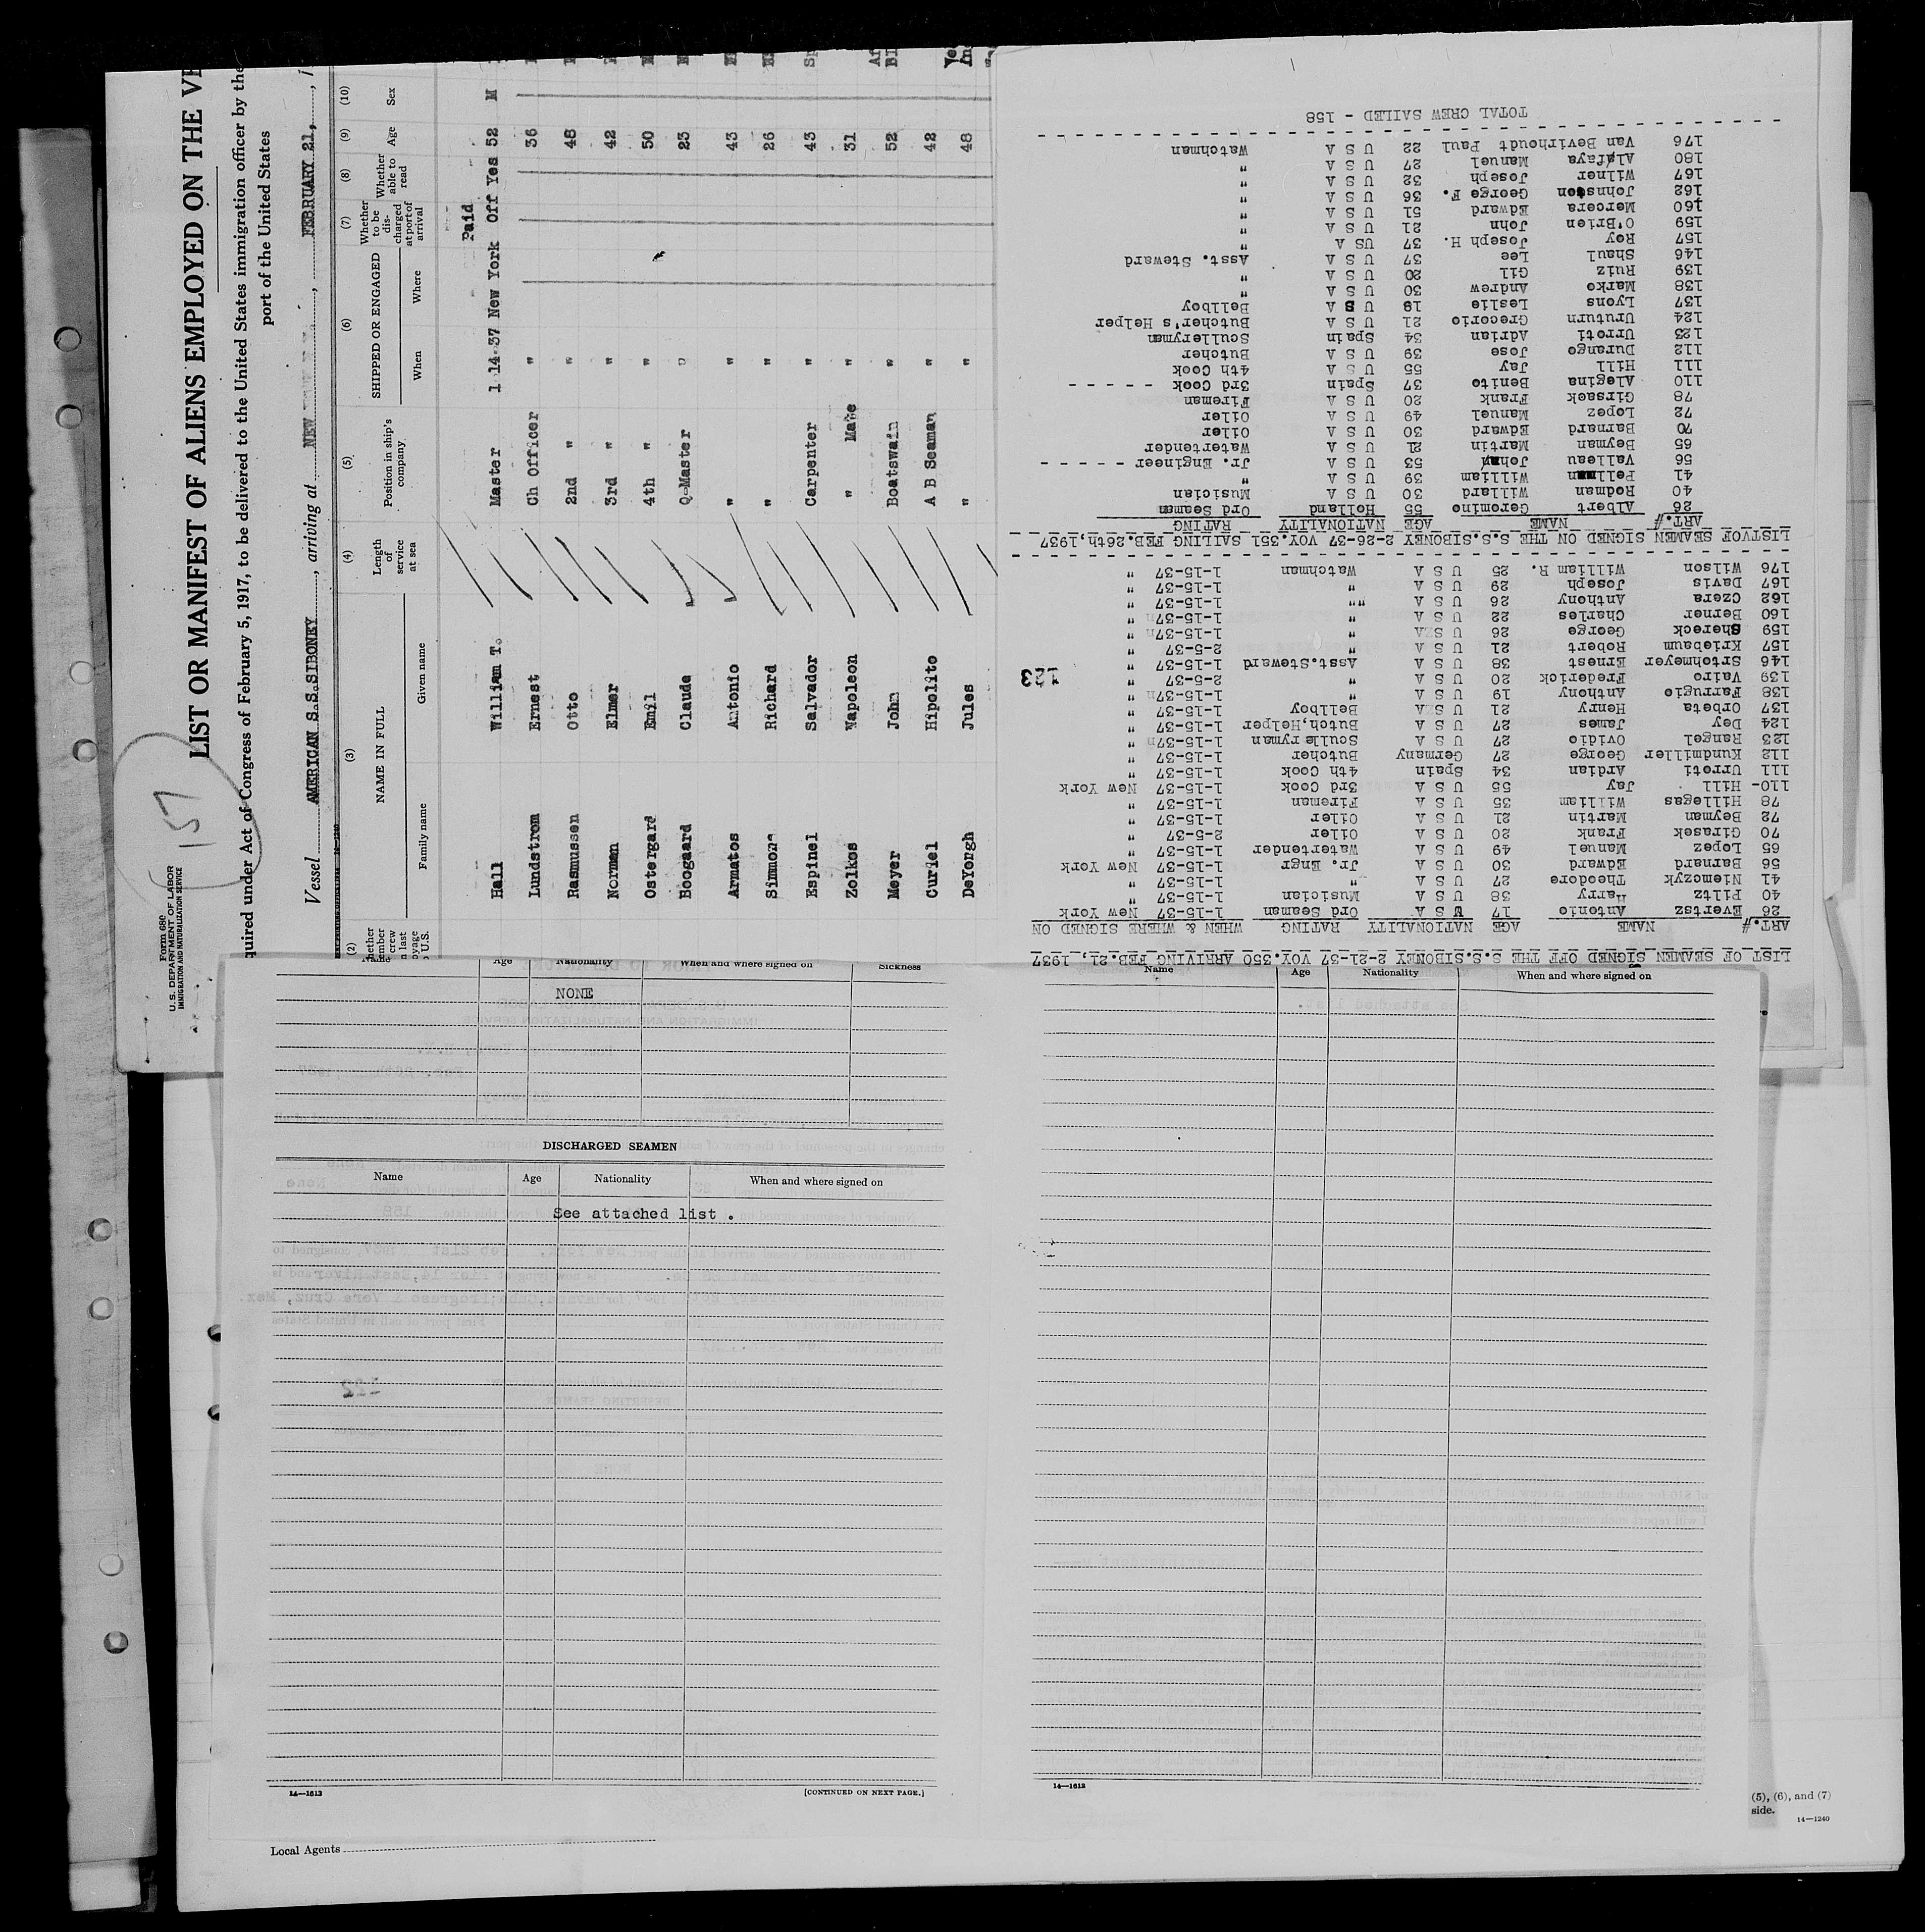 Form 680
U.S. DEPARTMENT OF LABOR
IMMIGRATION AND NATURALIZATION SERVICE
157
LIST OR MANIFEST OF ALIENS EMPLOYED ON THE VE
quired under Act of Congress of February 5, 1917, to be delivered to the United States immigration officer by the
port of the United States
Vessel AMERICAN S.S.SIBONEY, arriving at NEW , FEBRUARY 21,
(2) (3) (4) (5) (6) (7) (8) (9) (10)
NAME IN FULL
Family name Given name
Length of service at sea
Position in ship's company
SHIPPED OR ENGAGED
When Where
Whether to be dis-charged at port of arrival
Whether able to read
Age
Sex
Paid
Hall William T. Master 1 14 37 New York Off Yes 52 M
Lundstrom Ernest Ch Officer " 36
Rasmussen Otto 2nd " " 48
Norman Elmer 3rd " " 42
Ostergard Emil 4th " " 50
Boogaard Claude Q-Master " 23
Armatos Antonio " " 43
Simmons Richard " " 26
Espinel Salvador Carpenter " 43
Zolkos Napoleon " Mate " 31
Meyer John Boatswain " 52
Curiel Hipolito A B Seaman " 42
DeYongh Jules " " 48
LIST OF SEAMEN SIGNED OFF THE S.S.SIBONEY 2-21-37 VOY.350 ARRIVING FEB.21, 1937
ART.# NAME AGE NATIONALITY RATING WHEN & WHERE SIGNED ON
26 Evertsz Antonio 17 U S A Ord Seaman 1-15-37 New York
40 Piltz Harry 38 U S A Musician 1-15-37 "
41 Niemozyk Theodore 27 U S A " 1-15-37 "
56 Barnard Edward 30 U S A Jr. Engr 1-15-37 New York
65 Lopez Manuel 49 U S A Watertender 1-15-37 "
70 Girasek Frank 20 U S A Oiler 2-5-37 "
72 Beyman Martin 21 U S A Oiler 1-15-37 "
78 Hillegas William 35 U S A Fireman 1-15-37 "
110- Hill Jay 55 U S A 3rd Cook 1-15-37 New York
111 Urroti Ardian 34 Spain 4th Cook 1-15-37 "
112 Kundmiller George 27 Germany Butcher 1-15-37 "
123 Rangel Ovidio 27 U S A Sculleryman 1-15-37 "
124 Dey James 27 U S A Butch,Helper 1-15-37 "
137 Orbeta Henry 21 U S A Bellboy 1-15-37 "
138 Farrugio Anthony 19 U S A " 1-15-37 "
139 Vairo Frederick 20 U S A " 2-5-37 "
146 Srtohmeyer Ernest 38 U S A Asst.Steward 1-15-37 "
157 Kriebaum Robert 21 U S A " 2-5-37 "
159 Shereck George 26 U S A " 1-15-37 "
160 Berner Charles 22 U S A " 1-15-37 "
162 Czera Anthony 26 U S A "" 1-15-37 "
167 Davis Joseph 29 U S A " 1-15-37 "
176 Wilson William R. 25 U S A Watchman 1-15-37 "
123
LISTVOF SEAMEN SIGNED ON THE S.S.SIBONEY 2-26-37 VOY.351 SAILING FEB.26th,1937
ART.# NAME AGE NATIONALITY RATING
26 Albert Geromino 55 Holland Ord Seaman
40 Rodman Willard 30 U S A Musician
41 Pellman William 39 U S A "
56 Valleau John 53 U S A Jr. Engineer - - - - -
65 Beyman Martin 21 U S A Watertender
70 Barnard Edward 30 U S A Oiler
72 Lopez Manuel 49 U S A Oiler
78 Girasek Frank 20 U S A Fireman
110 Alegina Benito 37 Spain 3rd Cook - - - - -
111 Hill Jay 55 U S A 4th Cook
112 Durango Jose 39 U S A Butcher
123 Urroti Adrian 34 Spain Sculleryman
124 Uruturn Grecorio 21 U S A Butcher's Helper
137 Lyons Leslie 19 U S A Bellboy
138 Marko Andrew 30 U S A "
139 Ruiz Gil 20 U S A "
146 Shaul Lee 37 U S A Asst. Steward
157 Roy Joseph H. 37 US A "
159 O'Brien John 21 U S A "
160 Mercera Edward 51 U S A "
162 Johnston George F. 36 U S A "
167 Wilner Joseph 32 U S A "
180 Alafaya Manuel 27 U S A "
176 Van Bevirhoudt Paul 22 U S A Watchman
TOTAL CREW SAILED - 158
Name Age Nationality When and where signed on Sickness
NONE
DISCHARGED SEAMEN
Name Age Nationality When and where signed on
See attached list .
14—1613
[CONTINUED ON NEXT PAGE.]
Name Age Nationality When and where signed on
14—1613
Local Agents
(5), (6), and (7)
side.
14—1240